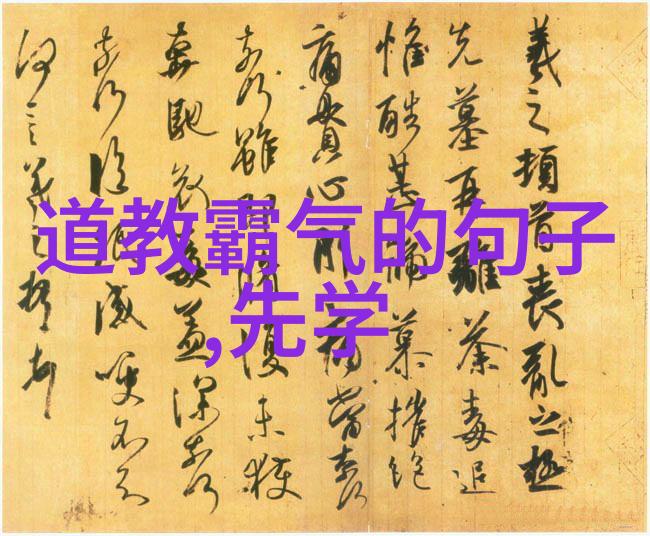 道教霸气的句子
,先学
羲之頓首喪亂之極
先墓再離荼毒追
惟酷甚號慕摧絕
痛貫心肝痛當奈何
奈何雖復未獲
奔馳哀毒益深奈何
奈何臨紙感哽不知
何言羲之頓首